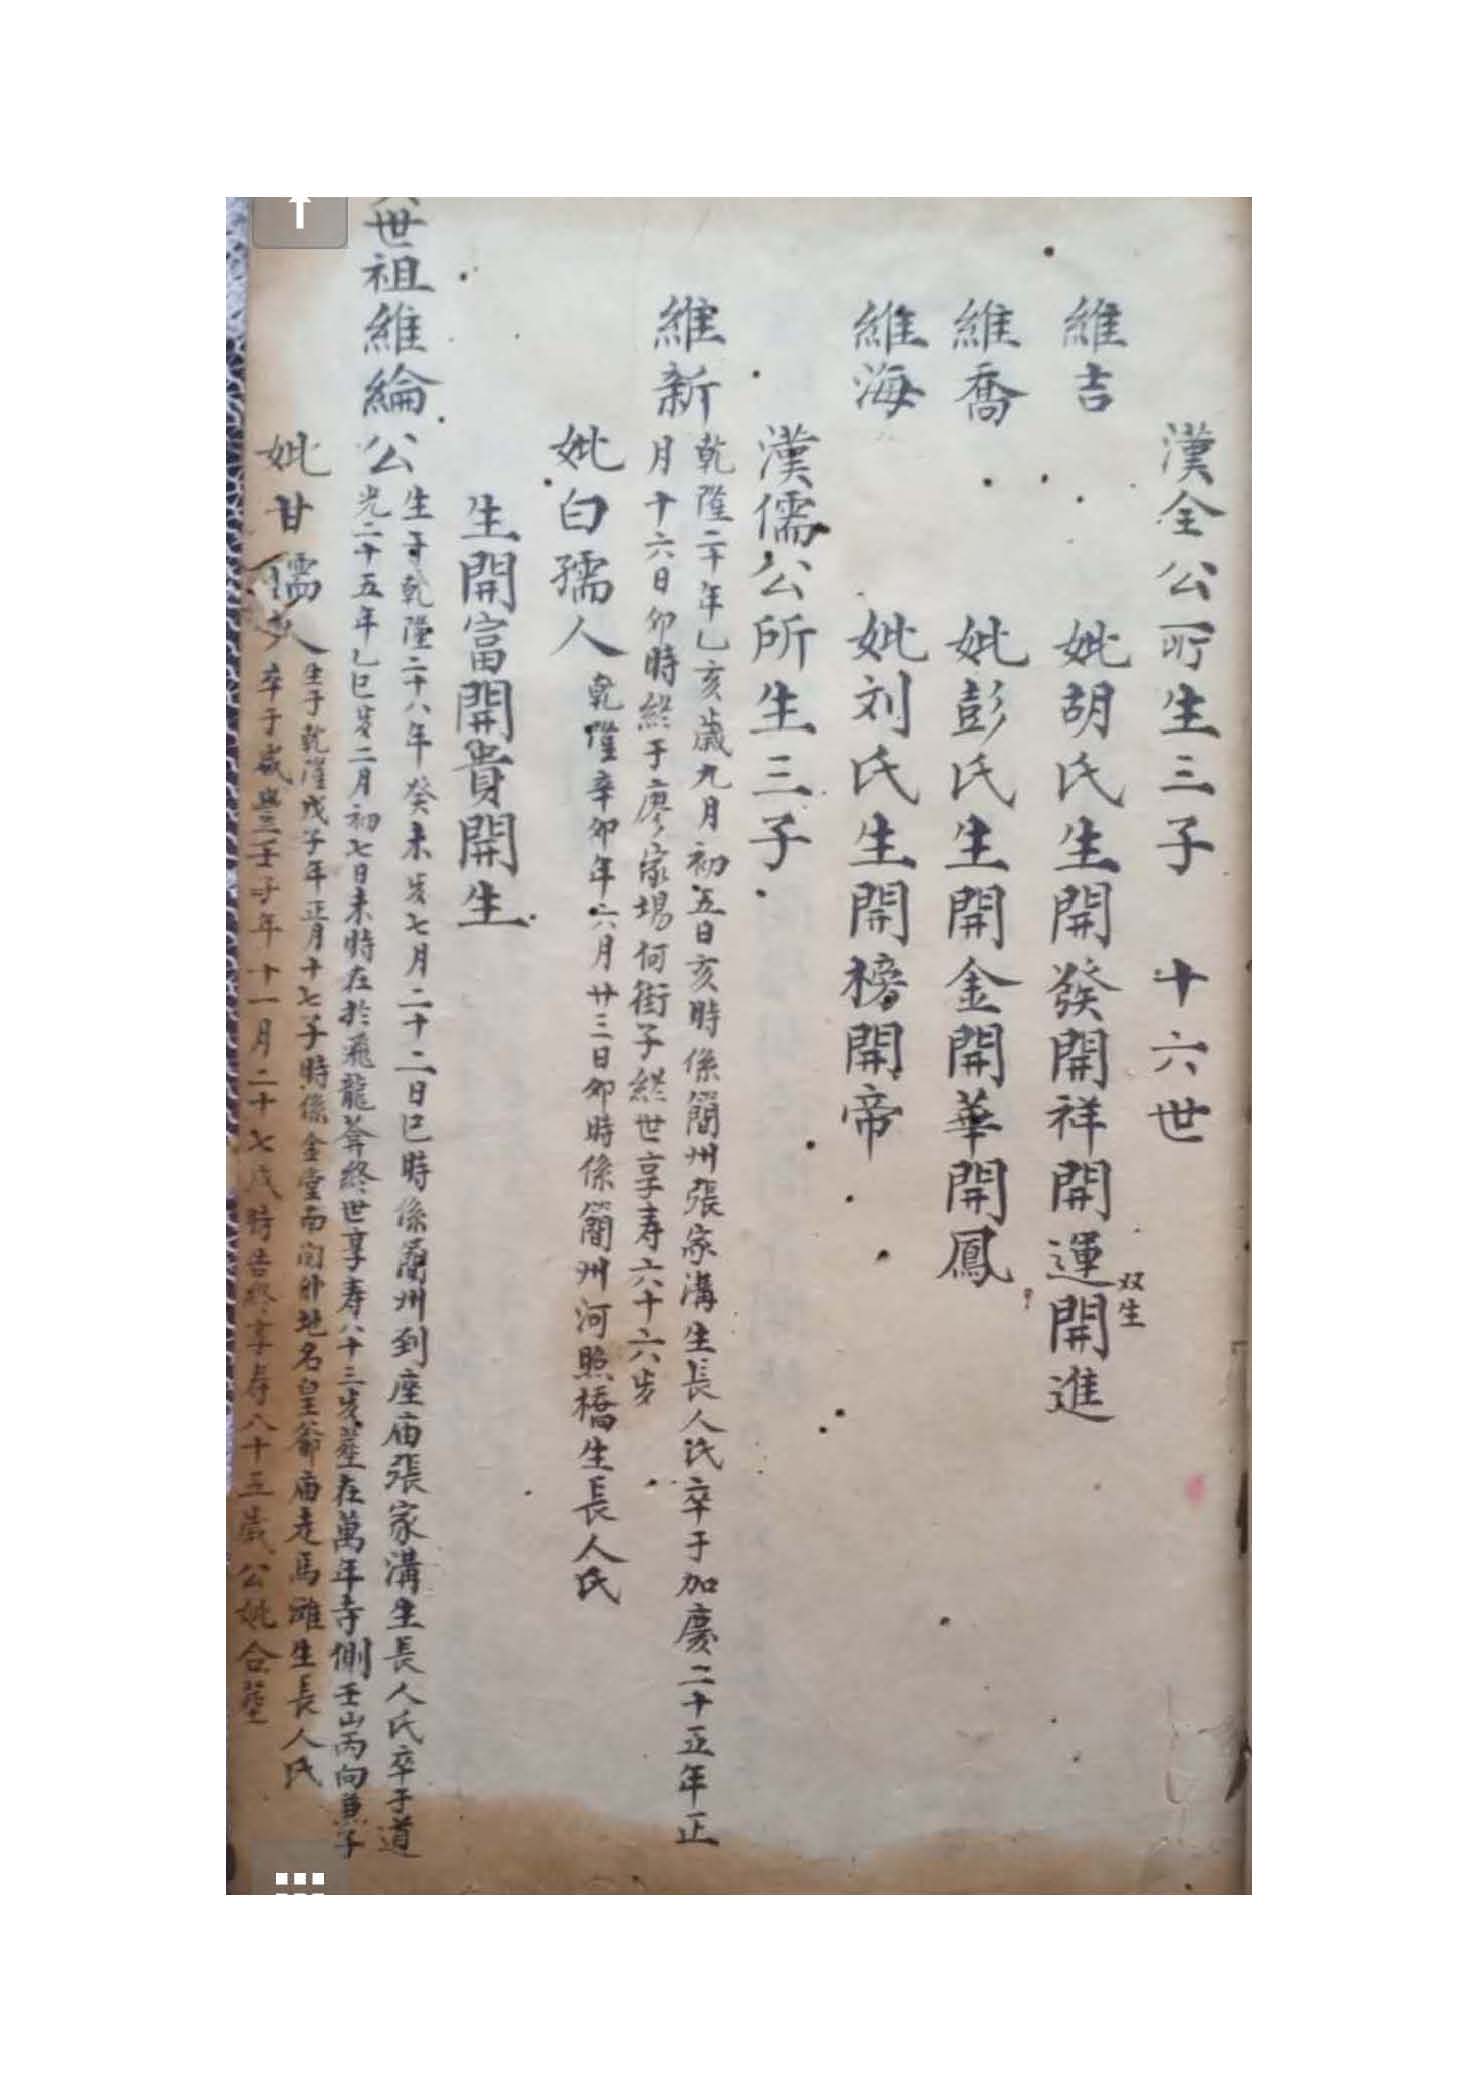 漢全公所生三子　十六世
維吉　妣胡氏生開發開祥開運開進
双生
維喬　妣彭氏生開金開華開鳳
維海　妣刘氏生開榜開帝
漢儒公所生三子
維新
乾隆二十年乙亥歲九月初五日亥時係簡州張家溝生長人氏卒于加慶二十五年正
月十六日卯時終于廖家場何街子終世享寿六十六岁
妣白孺人
乾隆辛卯年六月廿三日卯時係簡州河照橋生長人氏
生開富開貴開生
世祖維綸公
生于乾隆二十八年癸未岁七月二十二日巳時係簡州到座庙張家溝生長人氏卒于道
光二十五年乙巳岁二月初七日未時在於飛龍菴終世享寿八十三岁塟在萬年寺側壬山丙向兼子
妣甘儒人
生于乾隆戊子年正月十七子時係金堂南関外地名皇爺庙走馬灘生長人氏
卒于咸豐壬子年十一月二十七戌時告終享寿八十五歲公妣合塟